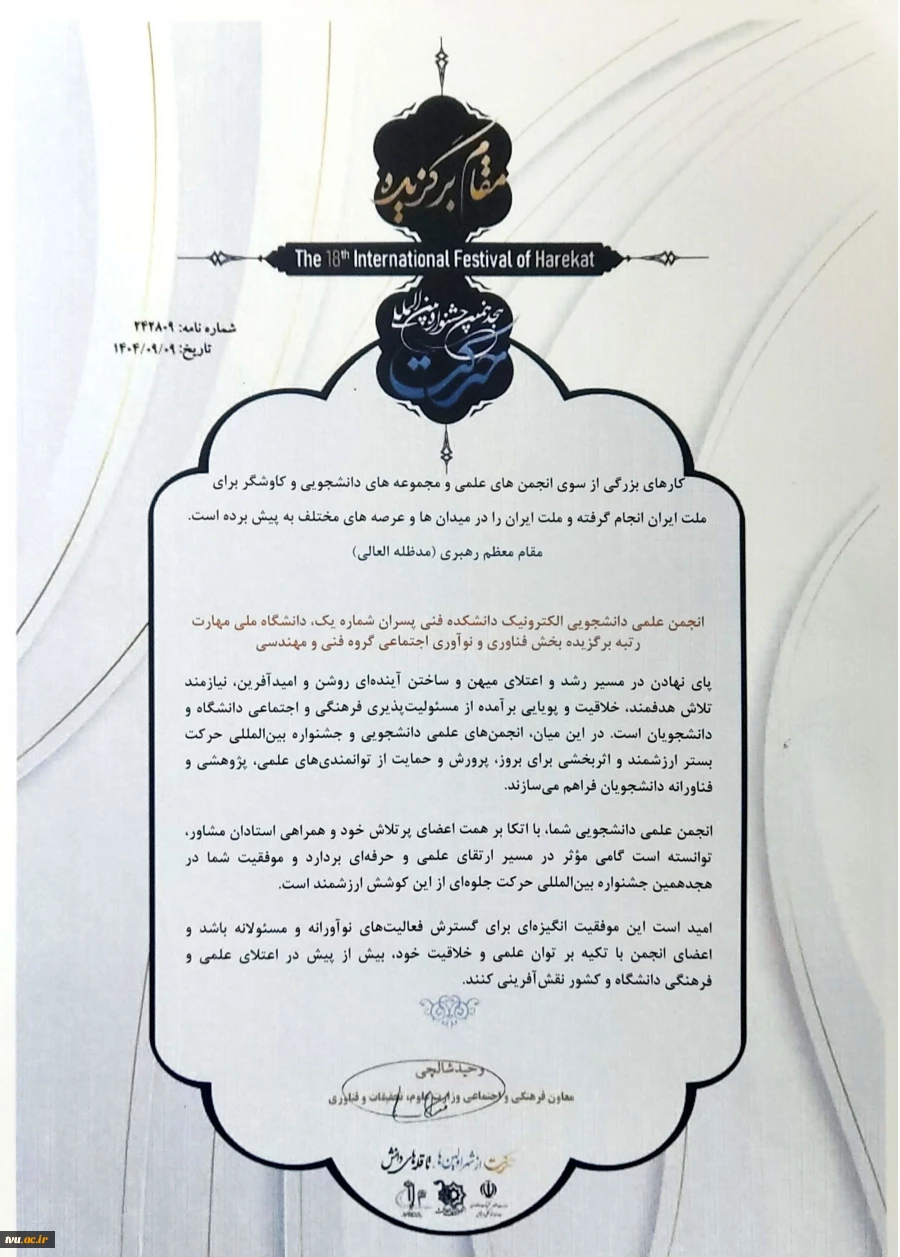 مقام برگزیده
The 18th International Festival of Harekat
هجدهمین جشنواره بین‌المللی
حرکت
شماره نامه: ۲۴۲۸۰۹
تاریخ: ۱۴۰۴/۰۹/۰۹
کارهای بزرگی از سوی انجمن های علمی و مجموعه های دانشجویی و کاوشگر برای
ملت ایران انجام گرفته و ملت ایران را در میدان ها و عرصه های مختلف به پیش برده است.
مقام معظم رهبری (مدظله العالی)
انجمن علمی دانشجویی الکترونیک دانشکده فنی پسران شماره یک، دانشگاه ملی مهارت
رتبه برگزیده بخش فناوری و نوآوری اجتماعی گروه فنی و مهندسی
پای نهادن در مسیر رشد و اعتلای میهن و ساختن آینده‌ای روشن و امیدآفرین، نیازمند
تلاش هدفمند، خلاقیت و پویایی برآمده از مسئولیت‌پذیری فرهنگی و اجتماعی دانشگاه و
دانشجویان است. در این میان، انجمن‌های علمی دانشجویی و جشنواره بین‌المللی حرکت
بستر ارزشمند و اثربخشی برای بروز، پرورش و حمایت از توانمندی‌های علمی، پژوهشی و
فناورانه دانشجویان فراهم می‌سازند.
انجمن علمی دانشجویی شما، با اتکا بر همت اعضای پرتلاش خود و همراهی استادان مشاور،
توانسته است گامی مؤثر در مسیر ارتقای علمی و حرفه‌ای بردارد و موفقیت شما در
هجدهمین جشنواره بین‌المللی حرکت جلوه‌ای از این کوشش ارزشمند است.
امید است این موفقیت انگیزه‌ای برای گسترش فعالیت‌های نوآورانه و مسئولانه باشد و
اعضای انجمن با تکیه بر توان علمی و خلاقیت خود، بیش از پیش در اعتلای علمی و
فرهنگی دانشگاه و کشور نقش‌آفرینی کنند.
وحید شالچی
معاون فرهنگی و اجتماعی وزارت علوم، تحقیقات و فناوری
حرکت از شهر اولین‌ها، تا قله‌های دانش
tvu.ac.ir